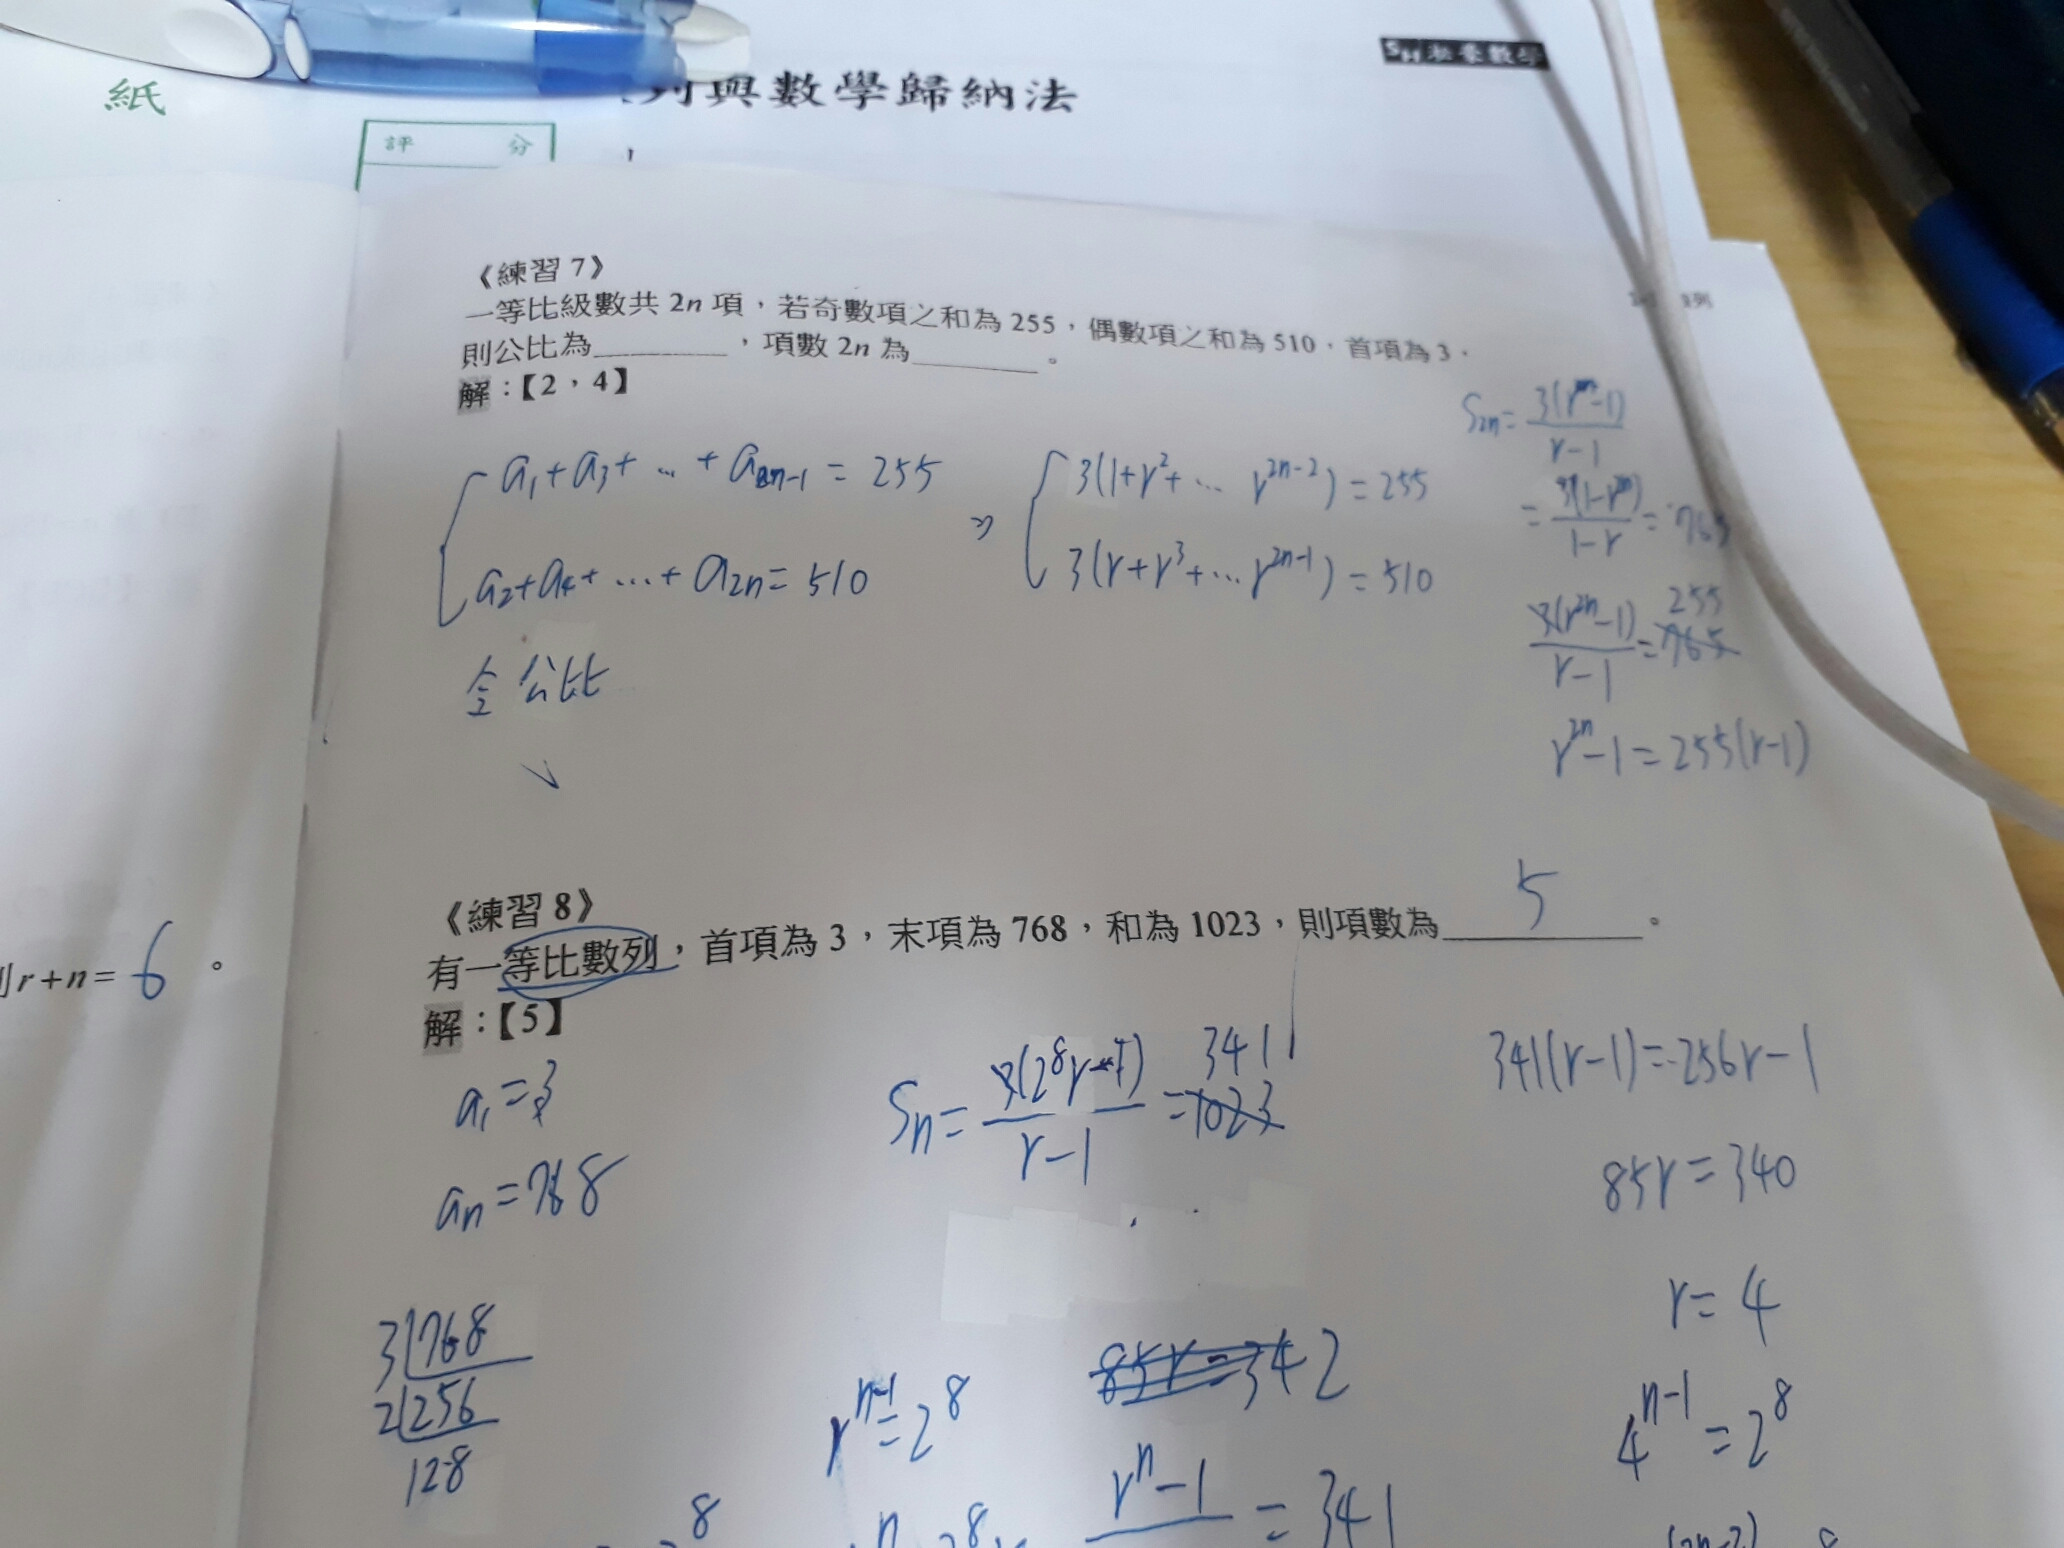 紙
列與數學歸納法
SM 淞豪數學
評 分
《練習 7》
一等比級數共 2n 項，若奇數項之和為 255，偶數項之和為 510，首項為 3，
則公比為________，項數 2n 為________。
解：【2，4】
a₁+a₃+ … +a₂ₙ₋₁ = 255
a₂+a₄+ … + a₂ₙ = 510
⇒
3(1+r²+ … r²ⁿ⁻²) = 255
3(r+r³+ … r²ⁿ⁻¹) = 510
全 公比
S₂ₙ = 3(r²ⁿ-1)
r-1
= 3(1-r²ⁿ)
1-r
= 765
3(r²ⁿ-1)
r-1
= 765
255
r²ⁿ-1 = 255(r-1)
《練習 8》
有一等比數列，首項為 3，末項為 768，和為 1023，則項數為 5 。
解：【5】
r+n= 6 。
a₁ = 3
aₙ = 768
Sₙ = 3(2⁸r-1)
r-1
= 1023
341
341(r-1) = 256r-1
85r = 340
r = 4
4ⁿ⁻¹ = 2⁸
3 768
2 256
128
rⁿ⁻¹ = 2⁸
85r = 342
rⁿ-1
= 341
8